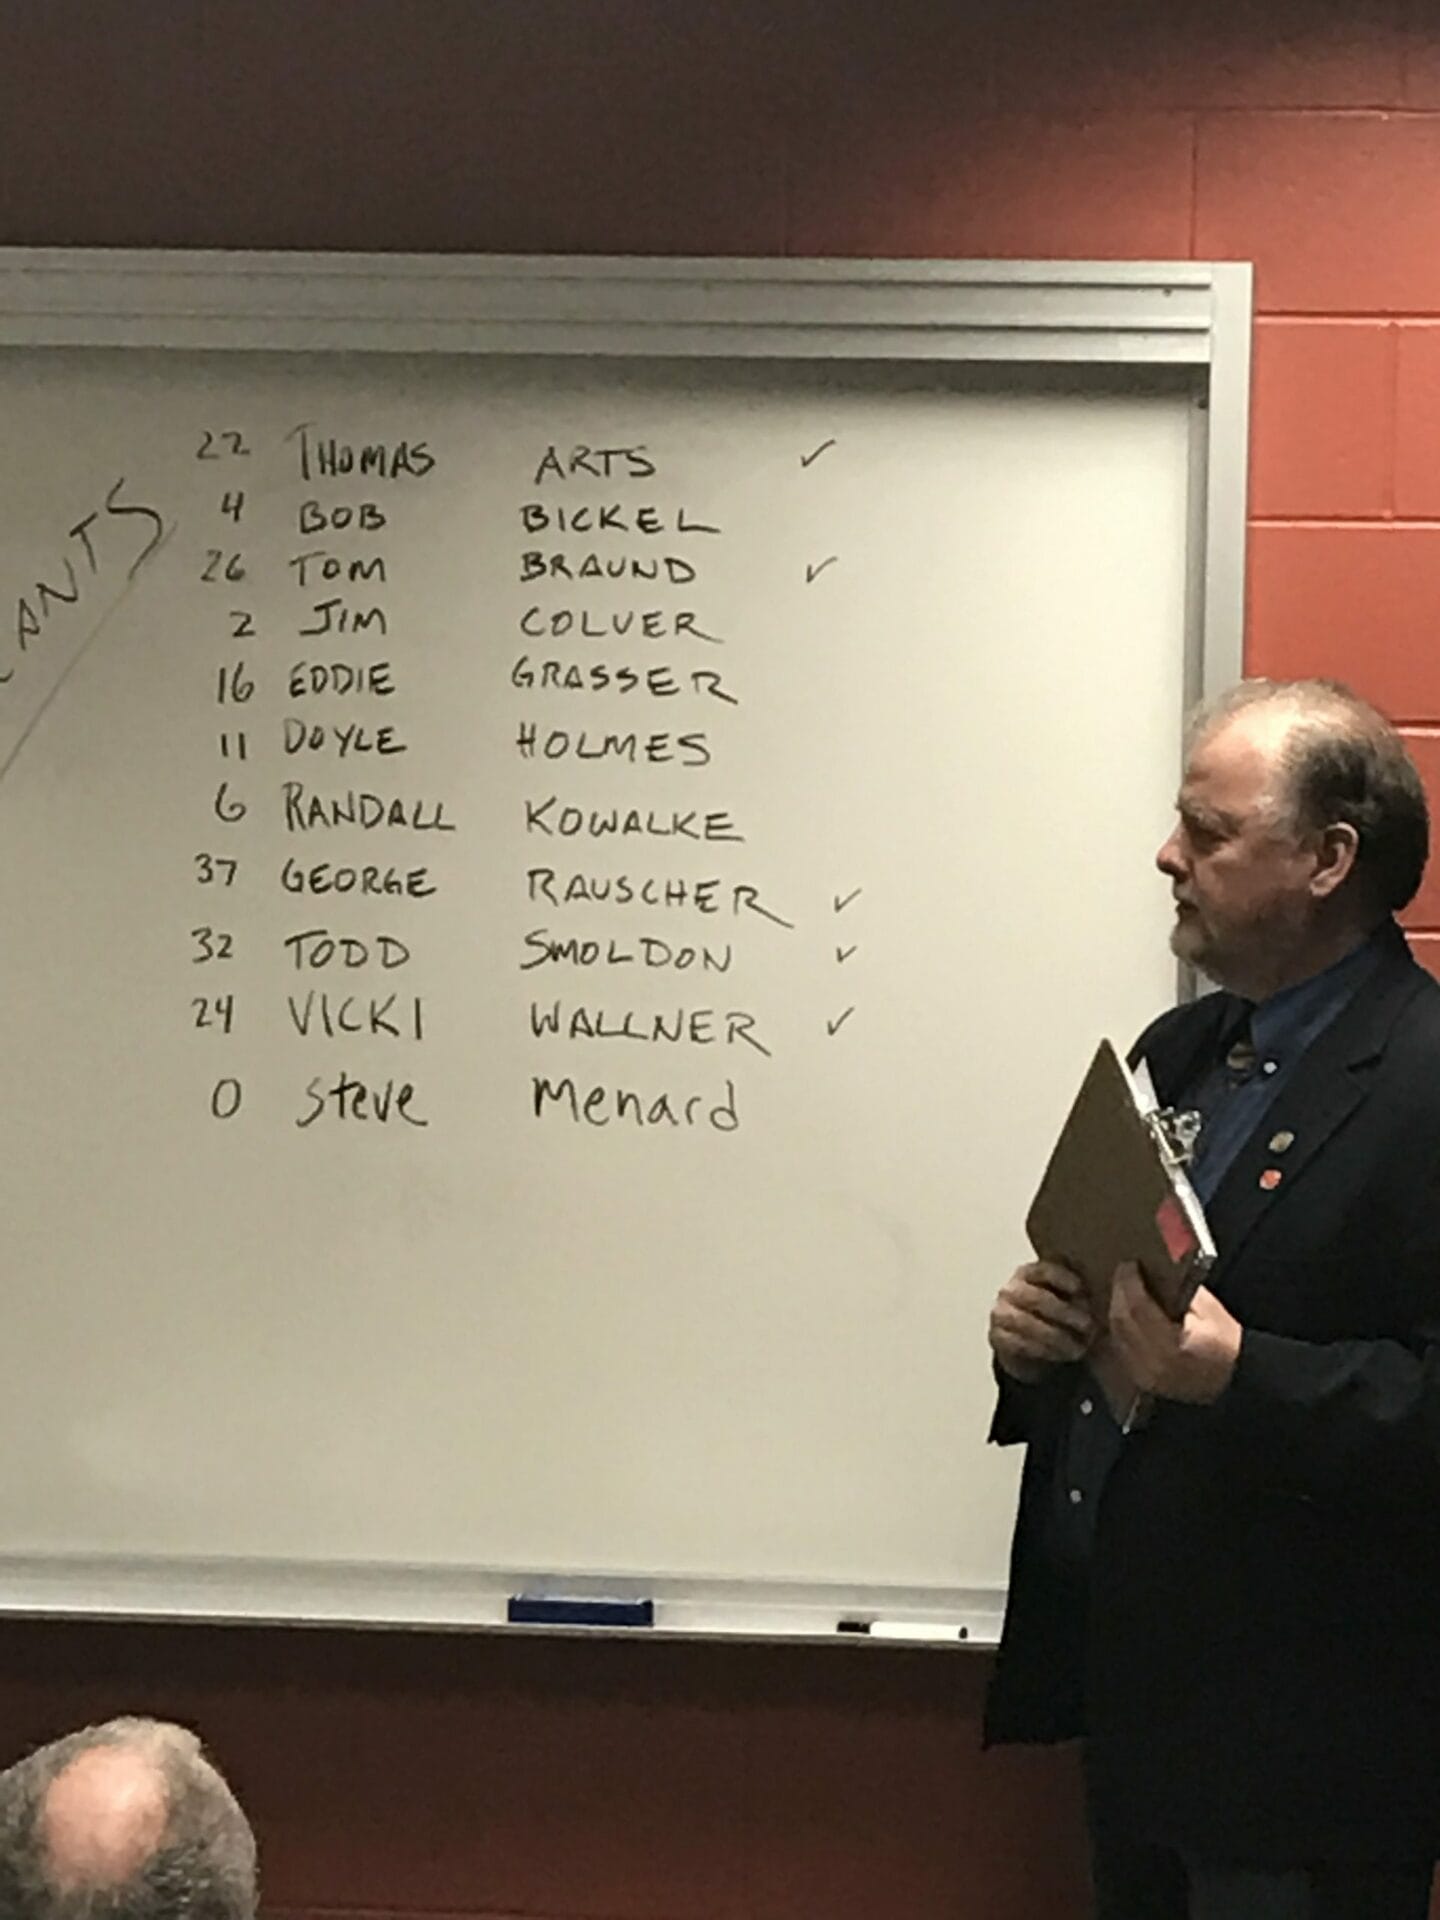 22 THOMAS ARTS ✓
4 BOB BICKEL
26 TOM BRAUND ✓
2 JIM COLVER
16 EDDIE GRASSER
11 DOYLE HOLMES
6 RANDALL KOWALKE
37 GEORGE RAUSCHER ✓
32 TODD SMOLDON ✓
24 VICKI WALLNER ✓
0 Steve Menard